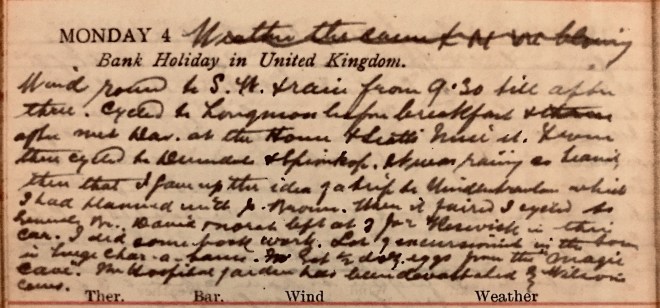 MONDAY 4 Weather the same & N. W. blowing
Bank Holiday in United Kingdom.
Wind round to S.W. & rain from 9.30 till after
three. Cycled to before breakfast &
after met Dav. at the Home & it. From
there cycled to & It was raining so heavily
then that I gave up the idea of a trip to which
I had planned with Jo. Brown. When it faired I cycled to
David & left at 7 for Keswick in their
car. I did some book work. Lot of excursionists in the town
in huge char-a-bancs. Got ½ doz. eggs from the "Magic
Cave. The Hospital garden has been devastated by Wilson's
cows.
Ther. Bar. Wind Weather